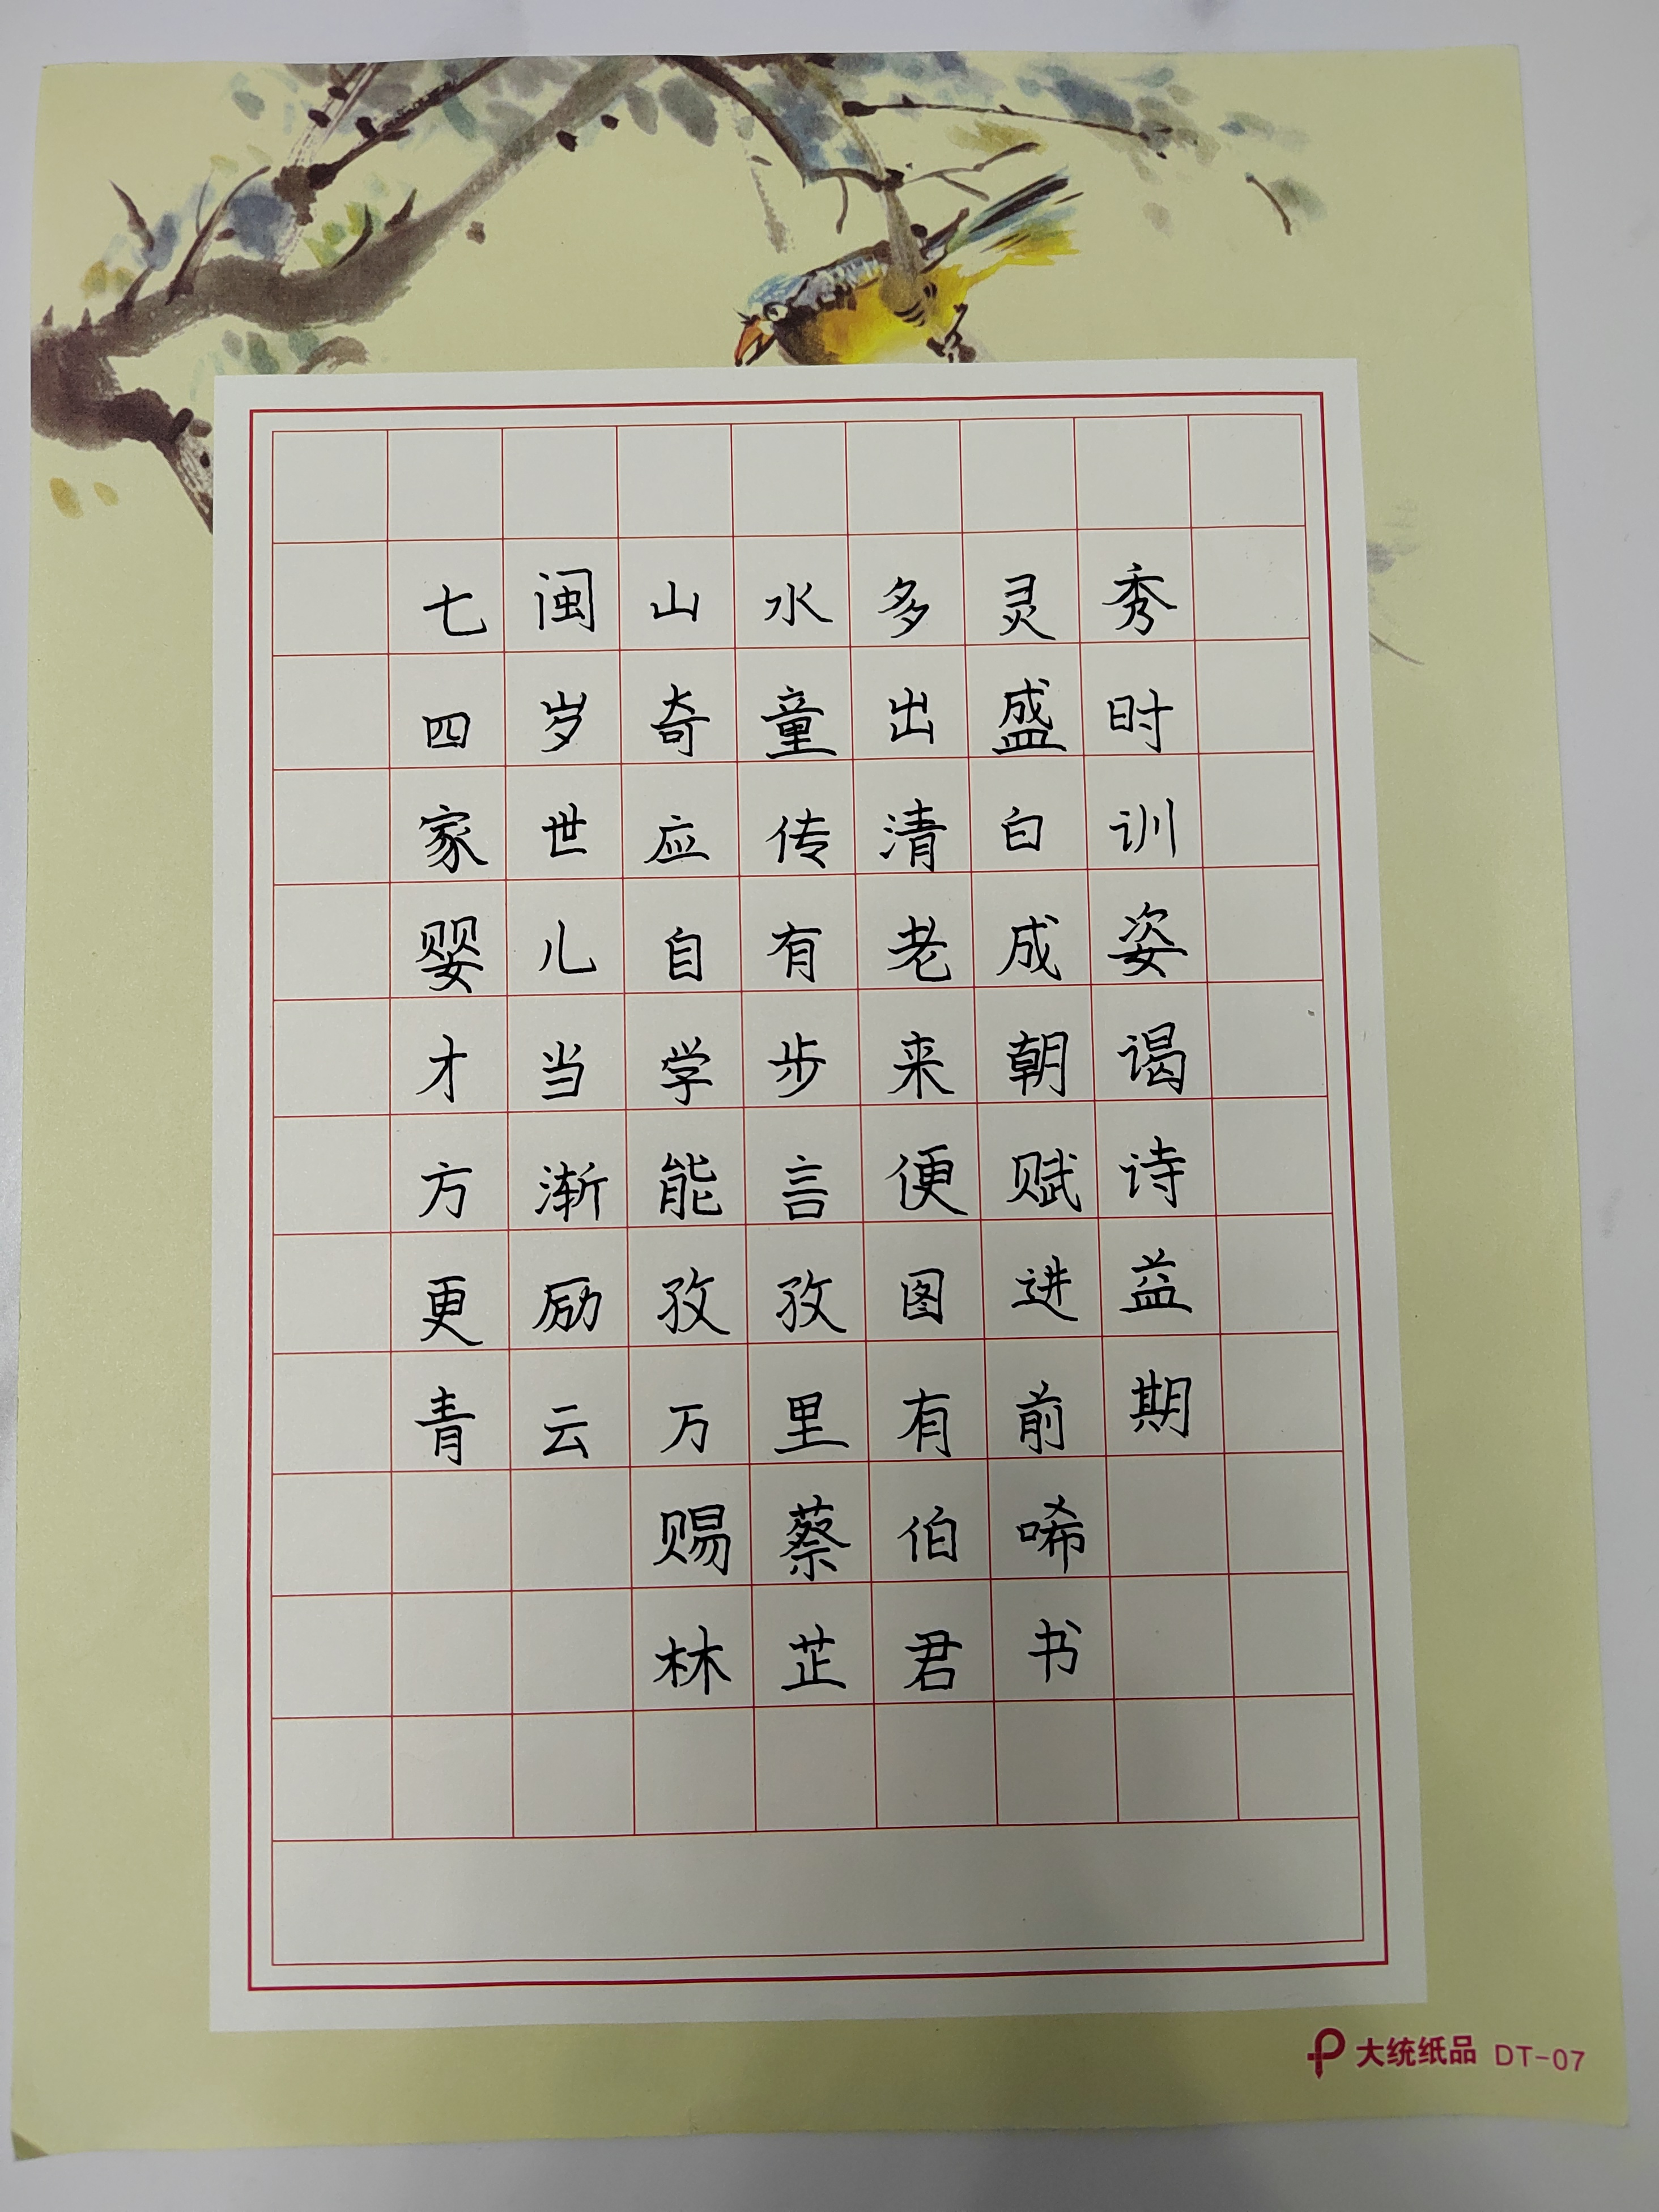 七闽山水多灵秀
四岁奇童出盛时
家世应传清白训
婴儿自有老成姿
才当学步来朝谒
方渐能言便赋诗
更励孜孜图进益
青云万里有前期
赐蔡伯唏
林芷君书
大统纸品 DT-07